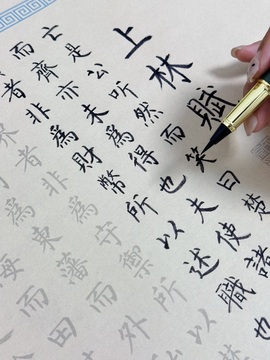 上林賦
亡是公听然而笑曰楚
而齊亦未為得也夫使諸
者非為財幣所以述職也
者非為守禦所以
為東藩而外
海而田